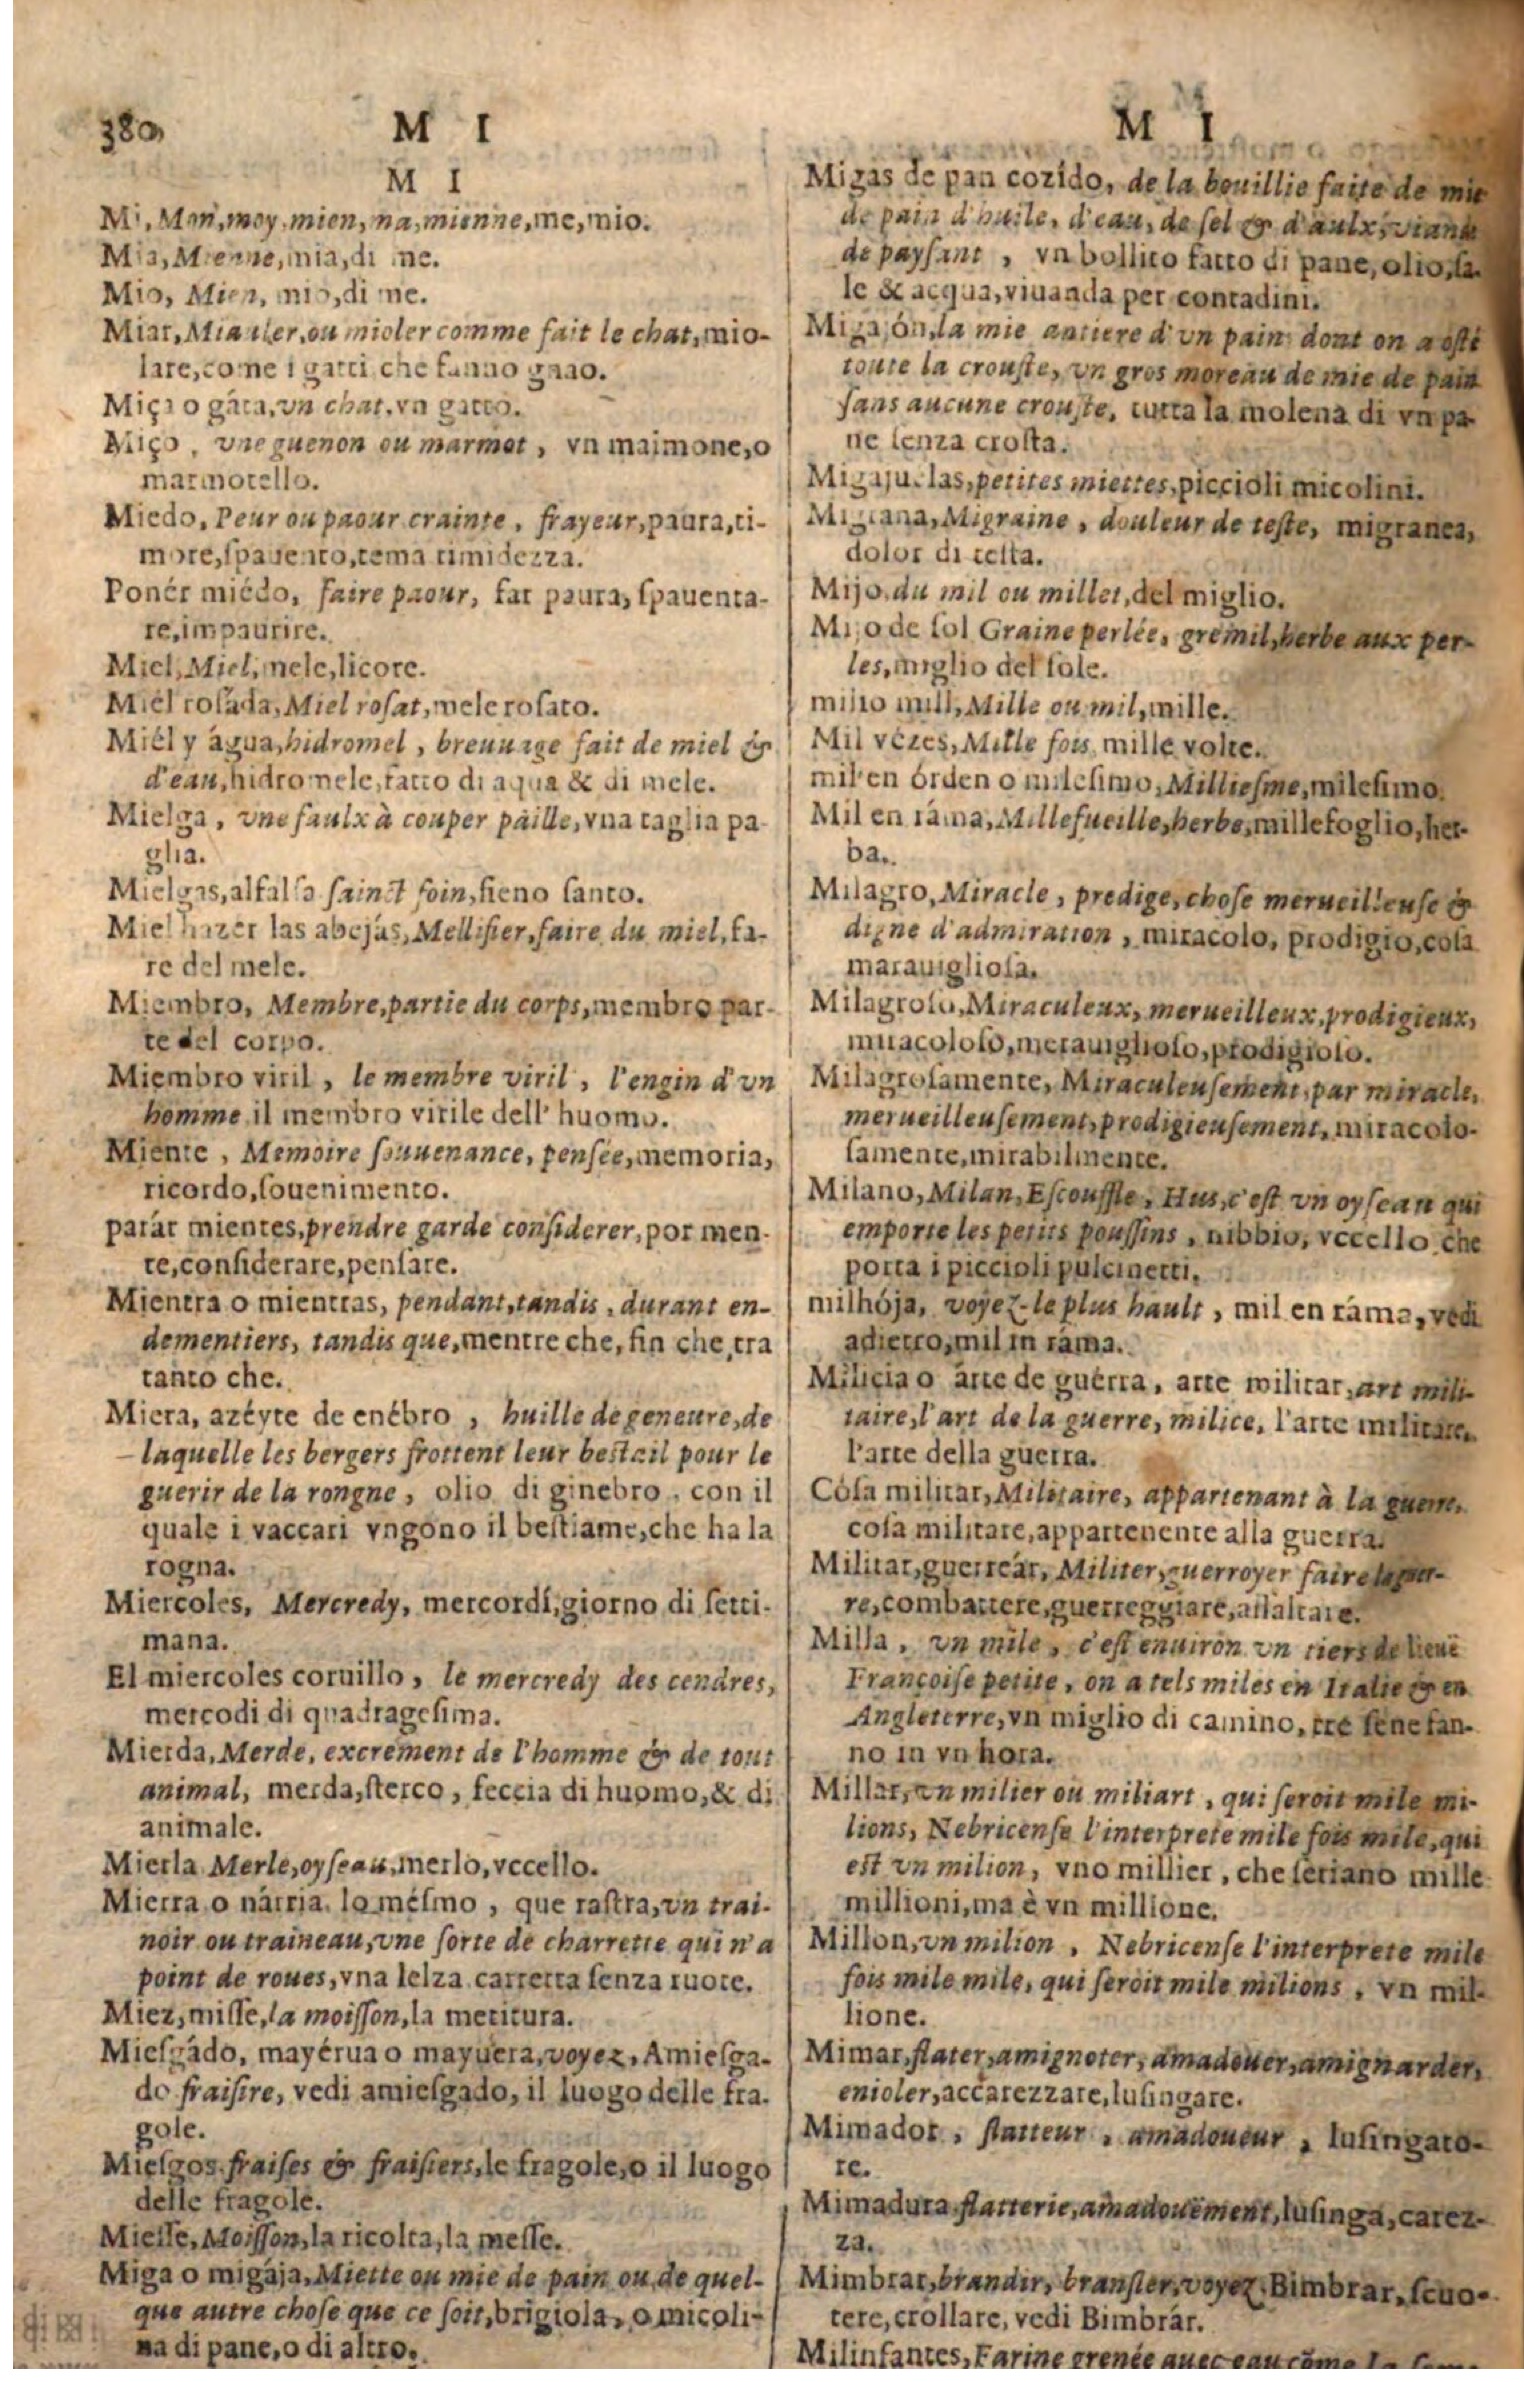 380
M I
M I
Mi, Mon, moy, mien, ma, mienne, me, mio.
Mia, Mienne, mia, di me.
Mio, Mien, mio, di me.
Miar, Miauler, ou mioler comme fait le chat, mio-
lare, come i gatti che fanno gnao.
Miça o gáta, vn chat. vn gatto.
Miço, vne guenon ou marmot, vn maimone, o
marmotello.
Miedo, Peur ou paour crainte, frayeur, paura, ti-
more, ſpauento, tema timidezza.
Ponér miédo, faire paour, far paura, ſpauenta-
re, impaurire.
Miel, Miel, mele, licore.
Miél roſáda, Miel roſat, mele roſato.
Miél y água, hidromel, breuuage fait de miel &
d'eau, hidromele, fatto di aqua & di mele.
Mielga, vne faulx à couper paille, vna taglia pa-
glia.
Mielgas, alfalſa sainct foin, fieno ſanto.
Miel hazér las abejás, Mellifier, faire du miel, fa-
re del mele.
Miembro, Membre, partie du corps, membro par-
te del corpo.
Miembro viril, le membre viril, l'engin d'vn
homme il membro virile dell' huomo.
Miente, Memoire souuenance, pensée, memoria,
ricordo, ſouenimento.
parár mientes, prendre garde conſiderer, por men-
te, conſiderare, penſare.
Mientra o mientras, pendant, tandis, durant en-
dementiers, tandis que, mentre che, fin che, tra
tanto che.
Miera, azéyte de enébro, huille de geneure, de
laquelle les bergers frottent leur bestail pour le
guerir de la rongne, olio di ginebro, con il
quale i vaccari vngono il beſtiame, che ha la
rogna.
Miercoles, Mercredy, mercordí, giorno di ſetti-
mana.
El miercoles coruillo, le mercredy des cendres,
mercodi di quadrageſima.
Mierda, Merde, excrement de l'homme & de tout
animal, merda, ſterco, feccia di huomo, & di
animale.
Mierla Merle, oyſeau, merlo, vccello.
Mierra o nárria. lo méſmo, que raſtra, vn trai-
noir ou traineau, vne ſorte de charrette qui n'a
point de roues, vna lelza carretta ſenza ruote.
Miez, miſſe, la moiſſon, la metitura.
Mieſgádo, mayérua o mayuera, voyez, Amieſga-
do fraiſire, vedi amieſgado, il luogo delle fra-
gole.
Mieſgos fraiſes & fraiſiers, le fragole, o il luogo
delle fragole.
Mieſſe, Moiſſon, la ricolta, la meſſe.
Miga o migája, Miette ou mie de pain ou de quel-
que autre choſe que ce ſoit, brigiola, o micoli-
na di pane, o di altro.
M I
Migas de pan cozído, de la bouillie faite de mie
de pain d'huile, d'eau, de ſel & d'aulx, viande
de payſant, vn bollito fatto di pane, olio, ſa-
le & acqua, viuanda per contadini.
Migajón, la mie antiere d'vn pain dont on a oſté
toute la crouſte, vn gros moreau de mie de pain
ſans aucune crouſte, tutta la molena di vn pa-
ne ſenza croſta.
Migajuelas, petites miettes, piccioli micolini.
Migrana, Migraine, douleur de teſte, migranea,
dolor di teſta.
Mijo, du mil ou millet, del miglio.
Mijo de ſol Graine perlée, gremil, herbe aux per-
les, miglio del ſole.
mil, Mille ou mil, mille.
Mil vézes, Mille fois, mille volte.
mil en órden o mileſimo, Millieſme, mileſimo.
Mil en ráma, Millefueille, herbe, millefoglio, her-
ba.
Milagro, Miracle, predige, choſe merueilleuſe &
digne d'admiration, miracolo, prodigio, coſa
marauiglioſa.
Milagroſo, Miraculeux, merueilleux, prodigieux,
miracoloſo, merauiglioſo, prodigioſo.
Milagroſamente, Miraculeuſement, par miracle,
merueilleuſement, prodigieuſement, miracolo-
ſamente, mirabilmente.
Milano, Milan, Eſcouffle, Hus, c'eſt vn oyſeau qui
emporte les petits pouſſins, nibbio, vccello che
porta i piccioli pulcinetti.
milhója, voyez-le plus hault, mil en ráma, vedi
adietro, mil in ráma.
Milicia o árte de guérra, arte militar, art mili-
taire, l'art de la guerre, milice, l'arte militare,
l'arte della guerra.
Cóſa militar, Militaire, appartenant à la guerre,
coſa militare, appartenente alla guerra.
Militar, guerreár, Militer, guerroyer faire la guer-
re, combattere, guerreggiare, aſſaltare.
Milla, vn mile, c'eſt enuiron vn tiers de lieuë
Françoiſe petite, on a tels miles en Italie & en
Angleterre, vn miglio di camino, tré ſene fan-
no in vn hora.
Millar, vn milier ou miliart, qui ſeroit mile mi-
lions, Nebricenſe l'interprete mile fois mile, qui
est vn milion, vno millier, che ſeriano mille
millioni, ma è vn millione.
Millon, vn milion, Nebricenſe l'interprete mile
fois mile mile, qui ſeroit mile milions, vn mil-
lione.
Mimar, flater, amignoter, amadouer, amignarder,
enioler, accarezzare, luſingare.
Mimador, flatteur, amadoueur, luſingato-
re.
Mimadura flatterie, amadouëment, luſinga, carez-
za.
Mimbrar, brandir, branſler, voyez, Bimbrar, ſcuo-
tere, crollare, vedi Bimbrár.
Milinfantes, Farine grenée auec eau cõme la